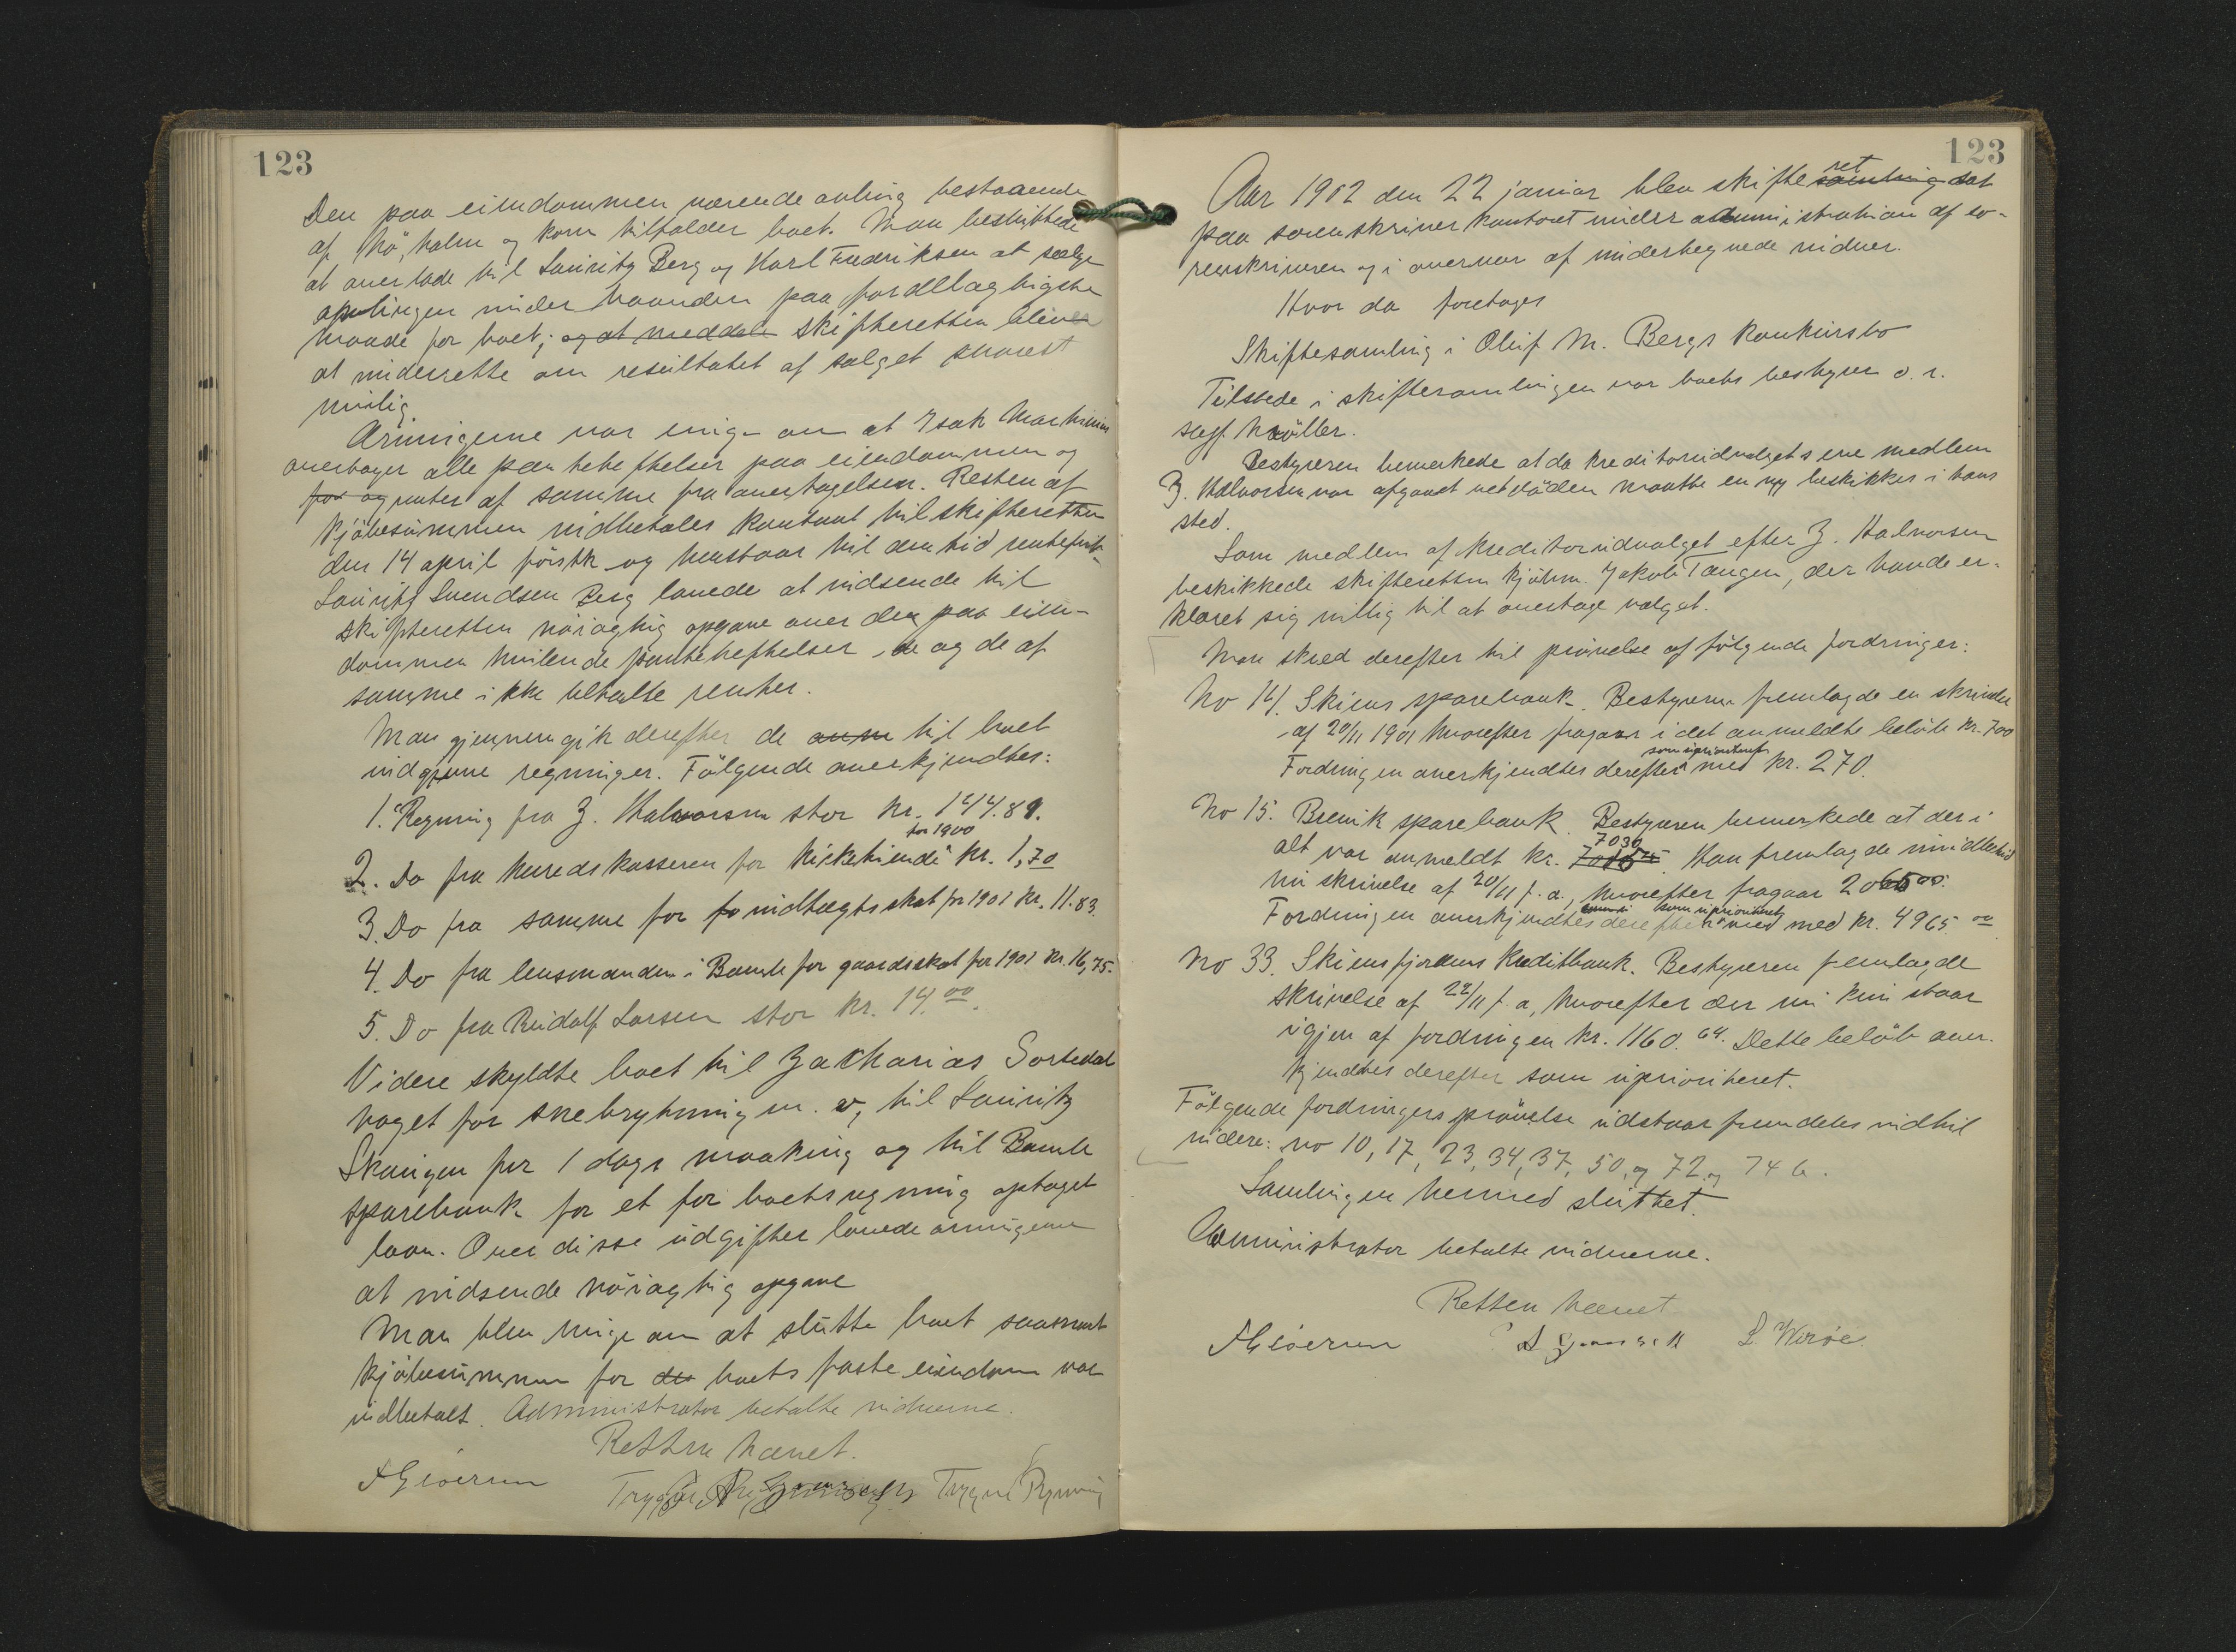 123
Den paa eiendommen værende avling bestaaende
af hö, halm og korn tilfalder boet. Man besluttede
at overlade til Lauritz Berg og Karl Fredriksen at sælge
avlingen under haanden paa fordelagtigste
maade for boet; og at meddele skifteretten bliver
at underrette om resultatet af salget snarest
mulig.
Arvingerne var enige om at Isak Mathisen
overtager alle panteheftelser paa eiendommen og
for og renter af samme fra overtagelsen. Resten af
kjöbesummen indbetales kontant til skifteretten
den 14 april förstk. og henstaar til den tid rentefrit.
Lauritz Svendsen Berg lovede at indsende til
skifteretten nöiagtig opgave over den paa eien-
dommen hvilende pantehæftelser, de og de af
samme ikke betalte renter.
Man gjennemgik derefter de anm til boet
indgivne regninger. Fölgende anerkjendtes:
1. Regning fra Z. Halvorsen stor kr. 144.89.
2. Do fra herredskasseren for kirketiende for 1900 kr. 1,70
3. Do fra samme for fo indtægtsskat for 1901 kr. 11.83.
4. Do fra lensmanden i Bamle for gaardsskat for 1901 kr. 16,75.
5. Do fra Rudolf Larsen stor kr. 14.00.
Videre skyldte boet til Zakharias Sortedal
noget for snebrytning m. v, til Lauritz
Skougen for 1 dags maaking og til Bamle
sparebank for et for boets regning optaget
laan. Over disse udgifter lovede arvingerne
at indsende nöiagtig opgave
Man blev enige om at slutte boet saasnart
kjöbesummen for de boets faste eiendom var
indbetalt. Administrator betalte vidnerne.
Retten hævet.
Trygve Ryning
123
Aar 1902 den 22 januar blev skifteret samling sat
paa sorenskriverkontoret under administration af so-
renskriveren og i overvær af undertegnede vidner.
Hvor da foretoges
Skiftesamling i Oluf M. Bergs konkursbo
Tilstede i skiftesamlingen var boets bestyrer o. r.
sagf. Möller.
Bestyreren bemerkede at da kreditorudvalgets ene medlem
Z. Halvorsen var afgaaet ved döden maatte en ny beskikkes i hans
sted.
Som medlem af kreditorudvalget efter Z. Halvorsen
beskikkede skifteretten kjöbm. Jakob Tangen, der havde er-
klæret sig villig til at overtage valget.
Man skred derefter til prövelse af fölgende fordringer:
No 14. Skiens sparebank. Bestyreren fremlagde en skrivelse
af 20/11 1901 hvorefter fragaar i det anmeldte belöb kr. 700
Fordringen anerkjendtes derefter som uprioriteret med kr. 270.
No 15. Brevik sparebank. Bestyreren bemerkede at der i
alt var anmeldt kr. 7030. Han fremlagde imidlertid
nu skrivelse af 20/11 f. a., hvorefter fragaar 2065 00.
Fordringen anerkjendtes derefter som uprioriteret med kr. 4965 00
No 33. Skiensfjordens kreditbank. Bestyreren fremlagde
skrivelse af 22/11 f. a, hvorefter der nu kun staar
igjen af fordringen kr. 1160.64. Dette belöb aner-
kjendtes derefter som uprioriteret.
Fölgende fordringers prövelse udstaar fremdeles indtil
videre: no 10, 17, 23, 34, 37, 50, og 72, og 74 b.
Samlingen hermed sluttet.
Administrator betalte vidnerne.
Retten hævet
L. Werøe